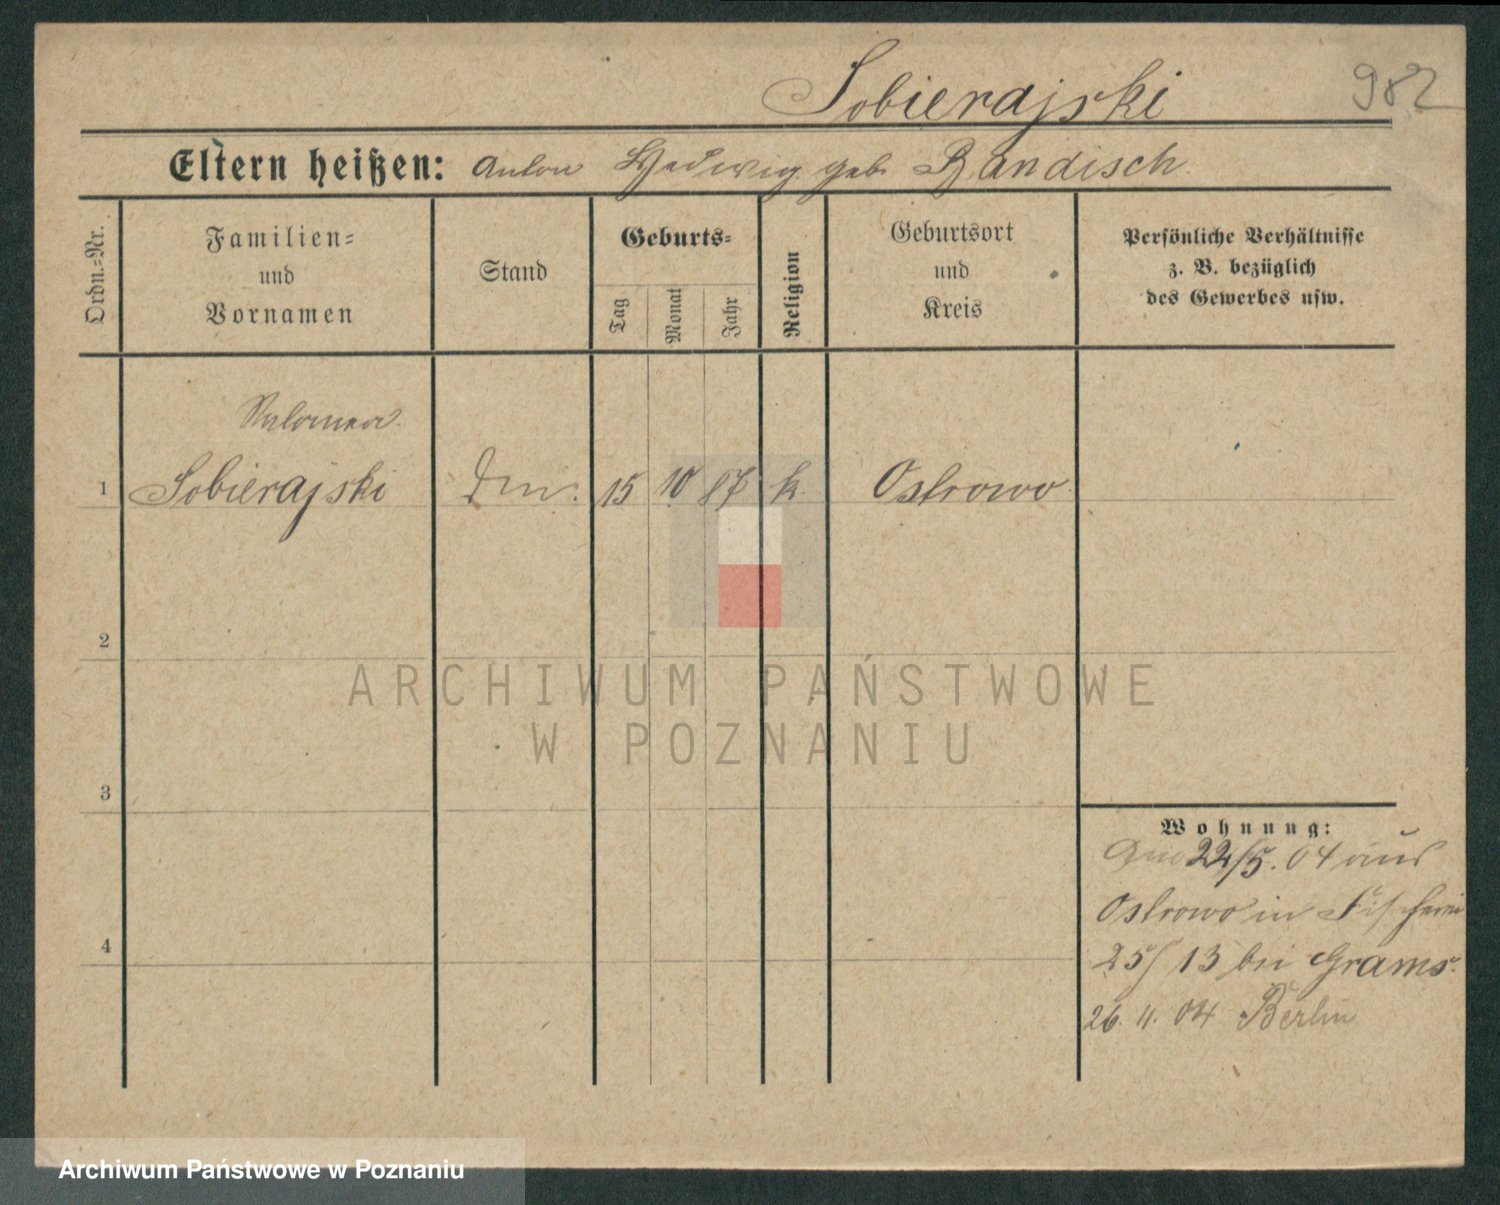 Sobierajski
982
Eltern heißen: Anton Hedwig geb. Bandisch
Ordn.-Nr.
Familien-
und
Vornamen
Stand
Geburts-
Tag
Monat
Jahr
Religion
Geburtsort
und
Kreis
Persönliche Verhältnisse
z. B. bezüglich
des Gewerbes usw.
Salomea
1 Sobierajski 15 10 87 k. Ostrowo
2
3
4
Wohnung:
22/5. 04 aus
Ostrowo in Fischerei
25/13 bei Grams.
26. 11. 04 Berlin
ARCHIWUM PAŃSTWOWE
W POZNANIU
Archiwum Państwowe w Poznaniu